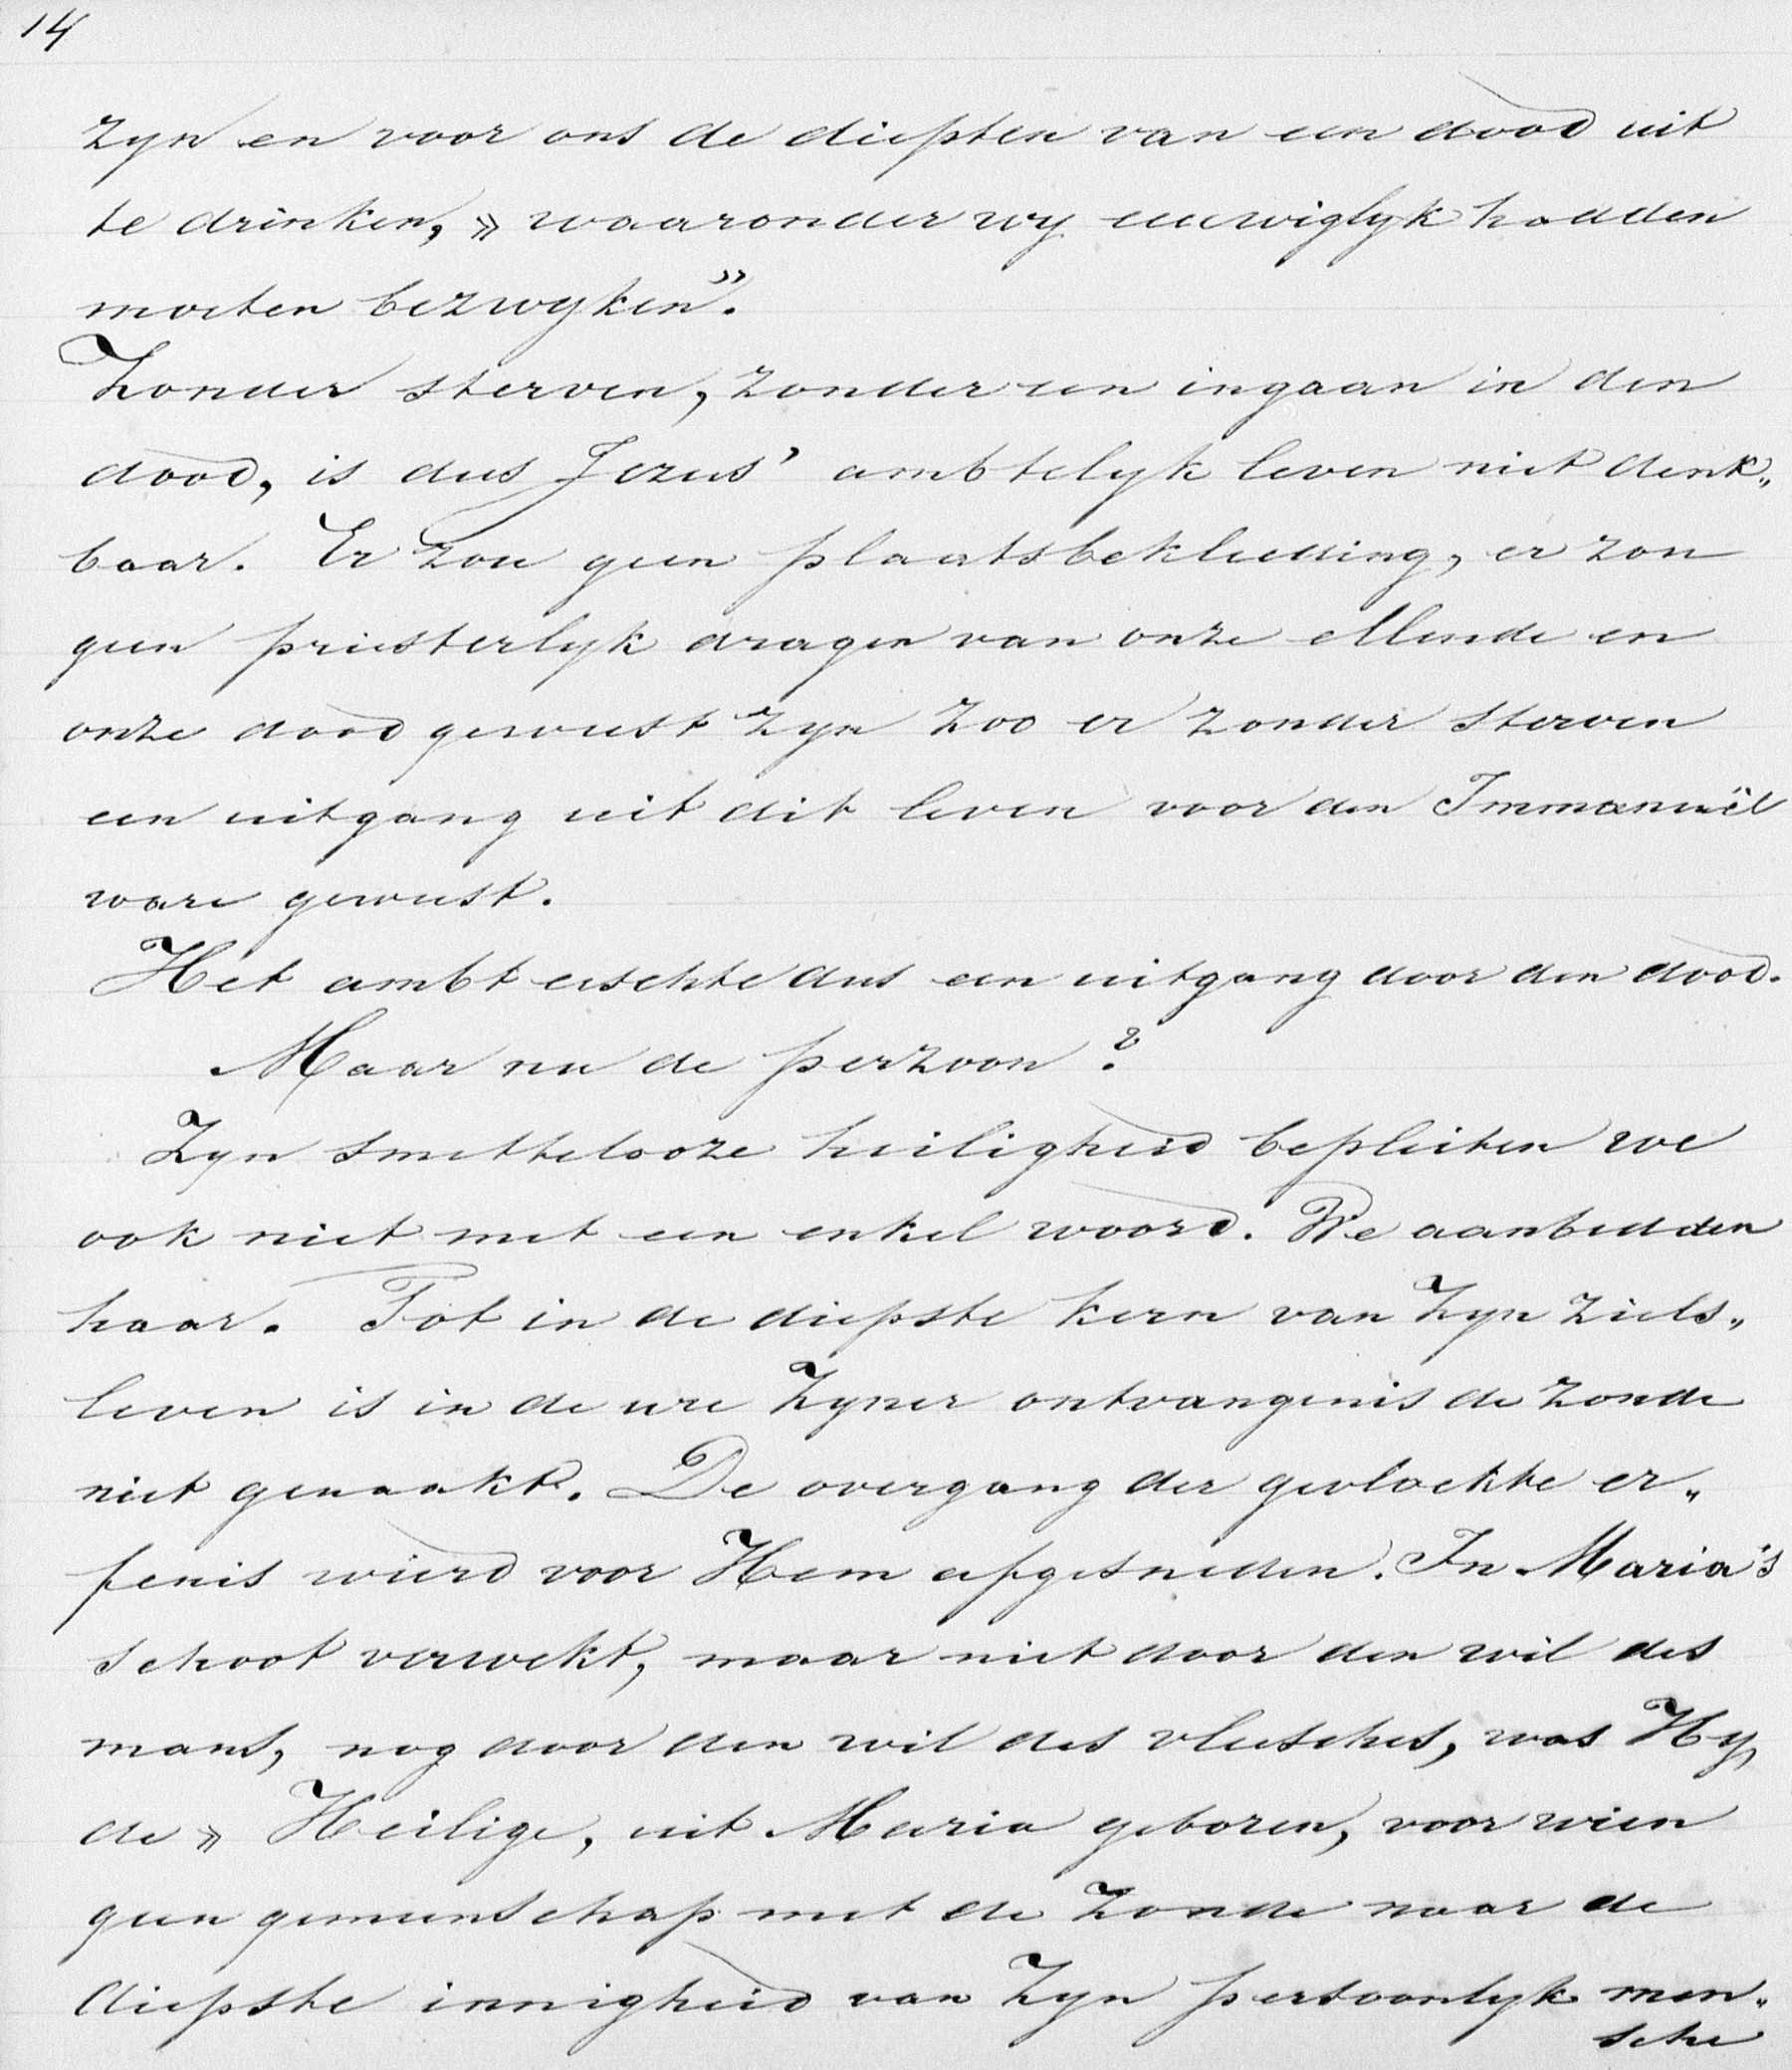 14
zyn en voor ons de diepten van een dood uit
te drinken, » waaronder wy eeuwiglyk hadden
moeten bezwyken".
Zonder sterven, zonder een ingaan in den
dood, is dus Jezus' ambtelyk leven niet denk„
baar. Er zou geen plaatsbekleeding, er zou
geen priesterlyk dragen van onze ellende en
onze dood geweest zyn zoo er zonder sterven
een uitgang uit dit leven voor den Immanuël
ware geweest.
Het ambt eischte dus een uitgang door den dood.
Maar nu de perzoon?
Zyn smettelooze heiligheid bepleiten we
ook niet met een enkel woord. We aanbidden
haar. Tot in de diepste kern van Zyn ziels„
leven is in de ure Zyner ontvangenis de zonde
niet genaakt. De overgang der gevloekte er„
fenis wierd voor Hem afgesneden. In Maria's
schoot verwekt, maar niet door den wil des
mans, nog door den wil des vleesches, was Hy
de » Heilige, uit Maria geboren, voor wien
geen gemeenschap met de zonde naar de
diepste innigheid van Zyn persoonlyk men„
sche